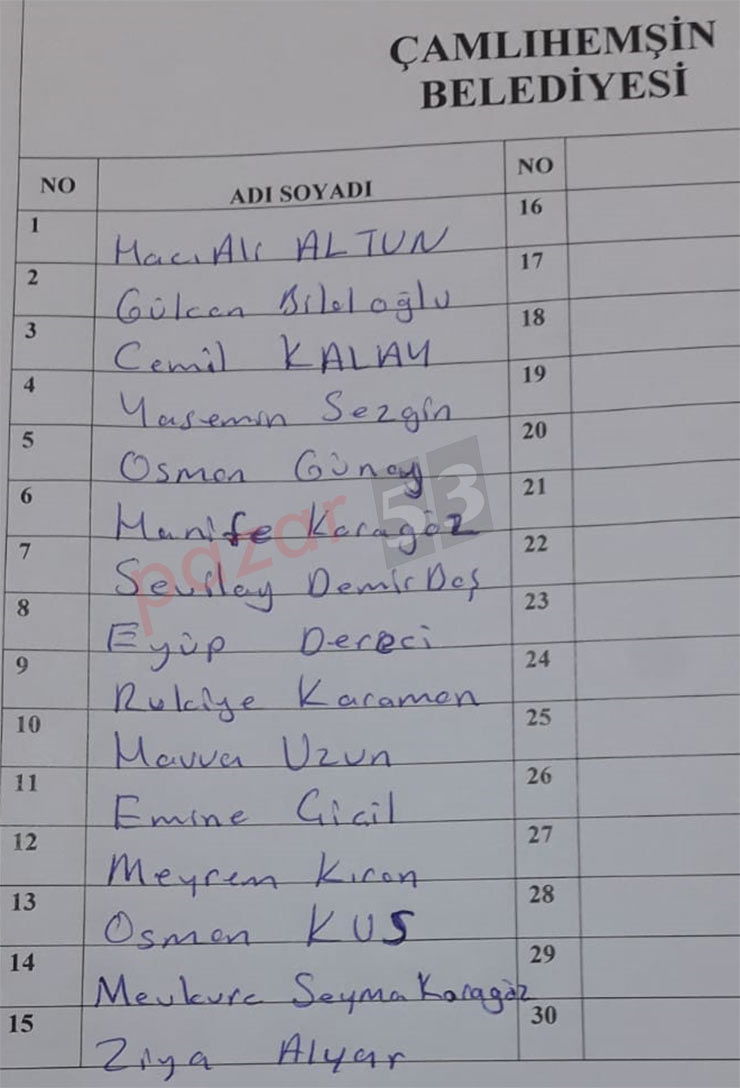 ÇAMLIHEMŞİN
BELEDİYESİ
NO ADI SOYADI NO
1 Hacı Ali ALTUN 16
2 Gülcan Bilaloğlu 17
3 Cemil KALAY 18
4 Yasemin Sezgin 19
5 Osman Günay 20
6 Hanife Karagöz 21
7 Sevilay DemirDaş 22
8 Eyüp Dereci 23
9 Rukiye Karaman 24
10 Havva Uzun 25
11 Emine Cicil 26
12 Meyrem Kıran 27
13 Osman KUS 28
14 Mevkure Seyma Karagöz 29
15 Ziya Alyar 30
pazar 53